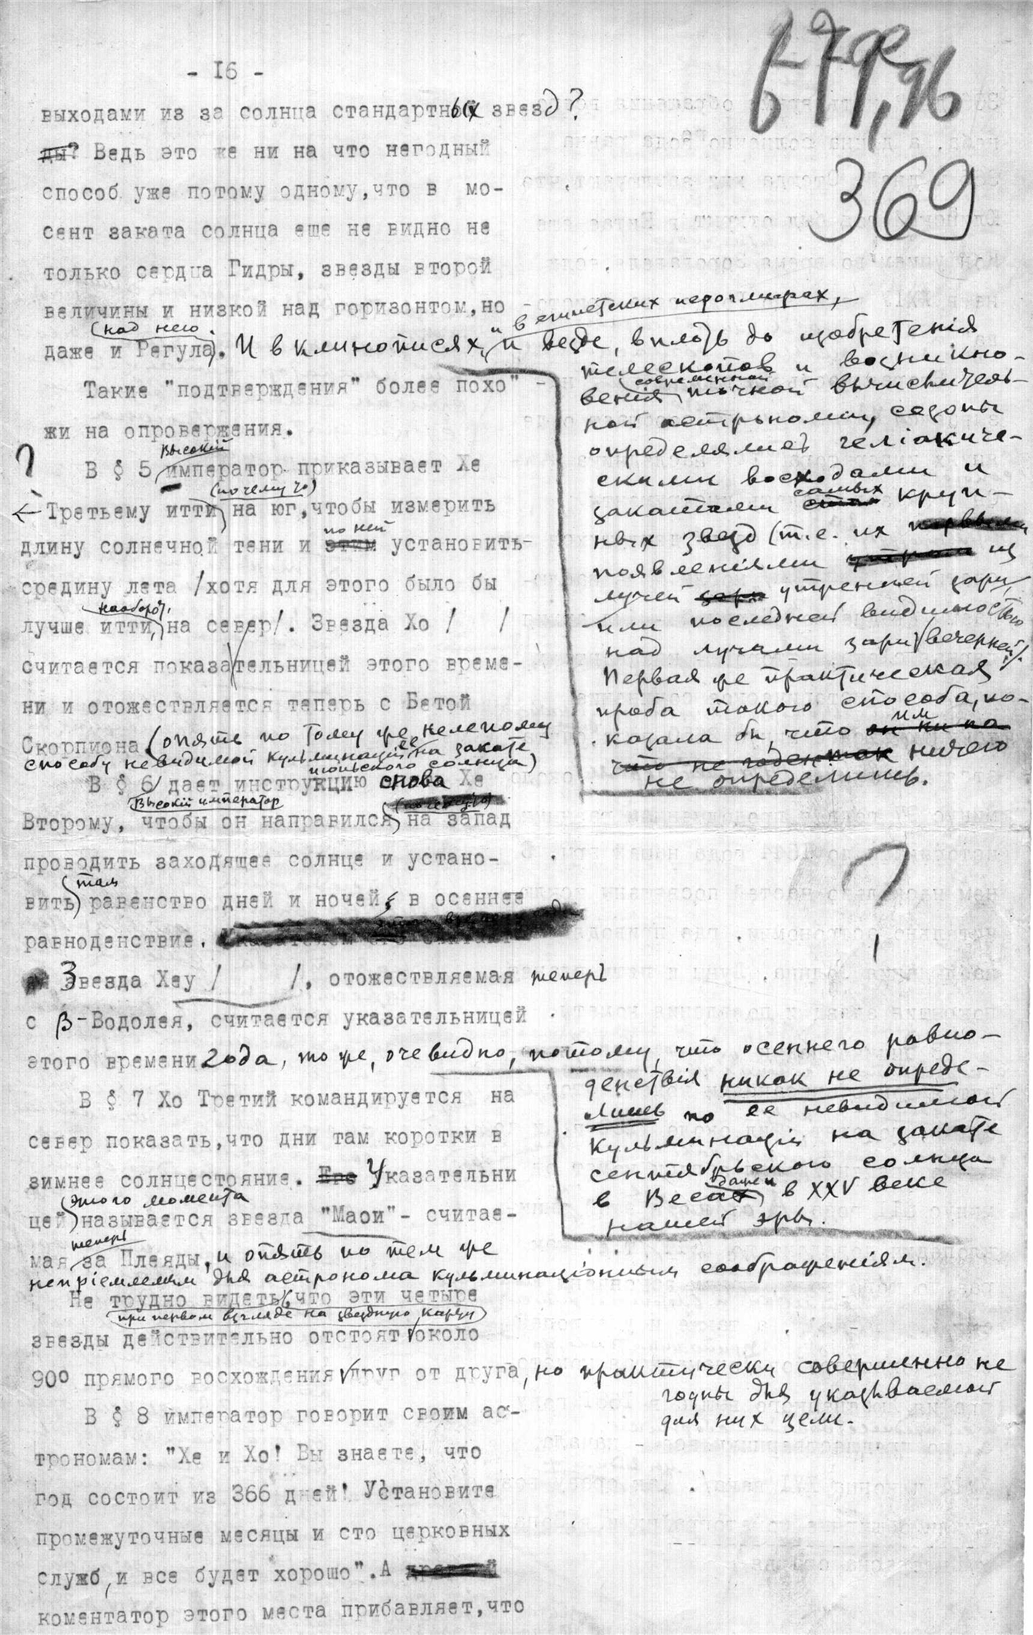 - I6 -
679,96
369
выходами из за солнца стандартных звезд?
ды? Ведь это же ни на что негодный
способ уже потому одному,что в мо-
сент заката солнца еше не видно не
только сердца Гидры, звезды второй
величины и низкой над горизонтом,но
даже и Регула (над нею). И в клинописях, и в египетских иероглифах, и везде, вплоть до изобретенiя
телескопов и возникно-
венiя современной точной вычислитель-
ной астрономiи, сезоны
определялись гелiакиче-
скими восходами и
закатами самых круп-
ных звезд (т.е. их первыми
появленiями утром из
лучей зари утренней зари,
или последней видимостью
над лучами зари вечерней).
Первая же практическая
проба такого способа, по-
казала бы, что им
ничего
не определишь.
Такие "подтверждения" более похо-
жи на опровержения.
?
В § 5 высокий император приказывает Хе
Третьему итти (почему то) на юг,чтобы измерить
длину солнечной тени и этим по ней установить
средину лета /хотя для этого было бы
лучше итти, наоборот, на север/. Звезда Хо / /
считается показательницей этого време-
ни и отожествляется теперь с Бетой
Скорпиона (опять по тому же нелепому
способу невидимой кульминацiи ее на закате
июльского солнца)
В § 6 дает инструкцию снова Хе
Второму, высокiй император чтобы он направился (почему то) на запад
проводить заходящее солнце и устано-
вить там равенство дней и ночей, в осеннее
равноденствие.
?
Звезда Хеу / /, отожествляемая теперь
с β-Водолея, считается указательницей
этого времени года, то же, очевидно, потому, что осеннего равно-
денствiя никак не опреде-
лишь по ее невидимой
кульминацiи на закате
сентябрьского солнца
в Весах даже и в XXV веке
нашей эры.
В § 7 Хо Третий командируется на
север показать,что дни там коротки в
зимнее солнцестояние. Его Указательни
цей этого момента называется звезда "Маои"- считае-
мая теперь за Плеяды, и опять по тем же
непрiемлемым для астронома кульминацiонным соображенiям.
Не трудно видеть, при первом взгляде на звездную карту, что эти четыре
звезды действительно отстоят около
90° прямого восхождения друг от друга, но практически совершенно не
годны для указываемой
для них цели.
В § 8 император говорит своим ас-
трономам: "Хе и Хо! Вы знаете, что
год состоит из 366 дней! Установите
промежуточные месяцы и сто церковных
служб, и все будет хорошо". А древний
коментатор этого места прибавляет,что